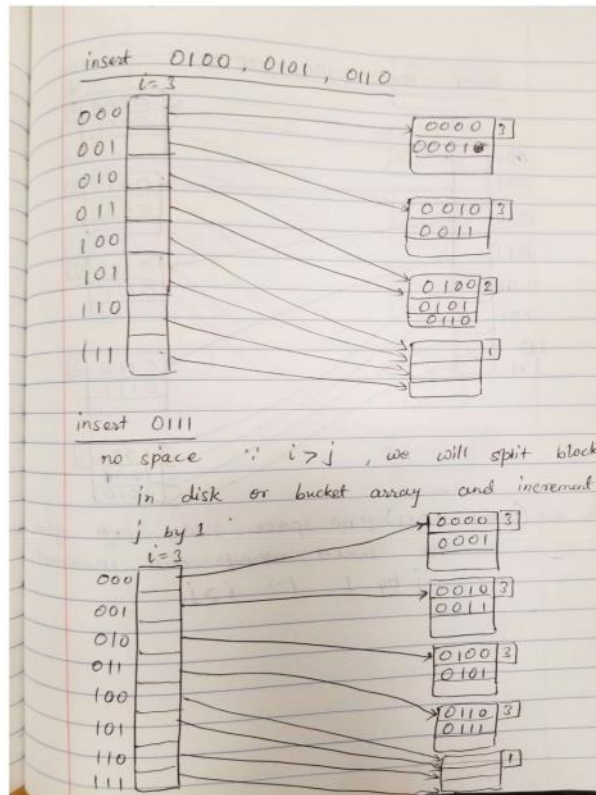 insert 0100, 0101, 0110
i=3
000
001
010
011
100
101
110
111
0000 3
0001
0010 3
0011
0100 2
0101
0110
1
insert 0111
no space ∵ i>j, we will split block
in disk or bucket array and increment
j by 1
i=3
000
001
010
011
100
101
110
111
0000 3
0001
0010 3
0011
0100 3
0101
0110 3
0111
1